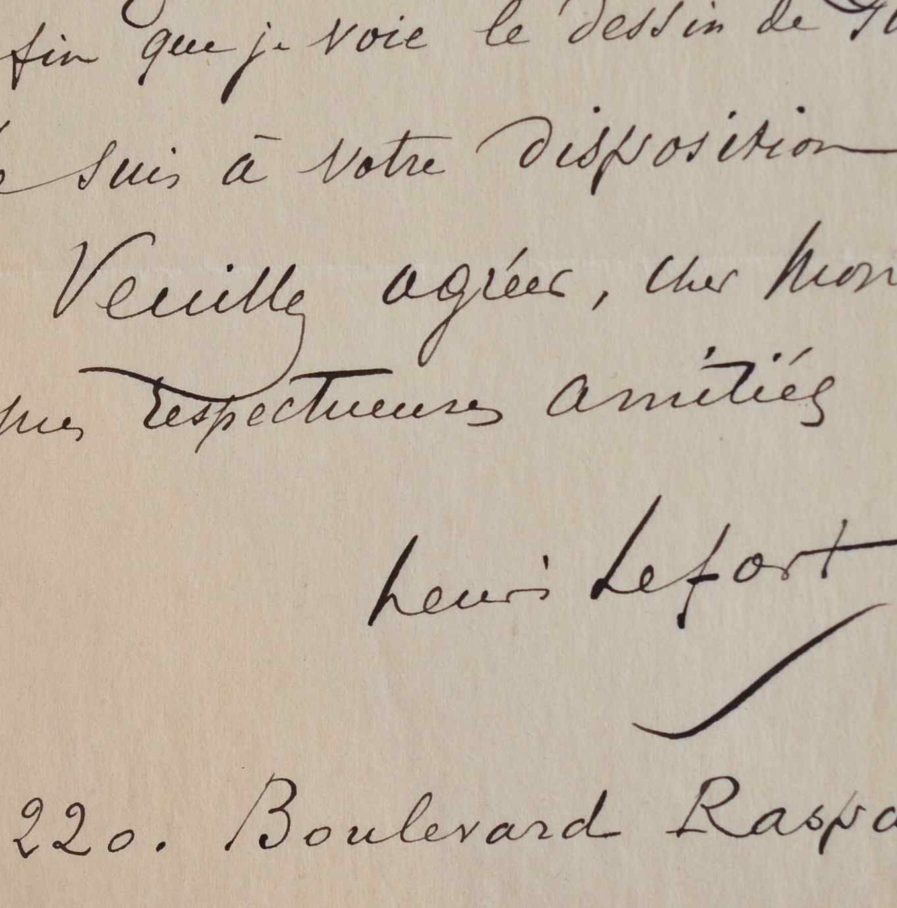 fin que je voie le dessin de
suis à votre disposition
Veuillez agréer, cher Mon
mes respectueuses amitiés
henri Lefort
220. Boulevard Raspa